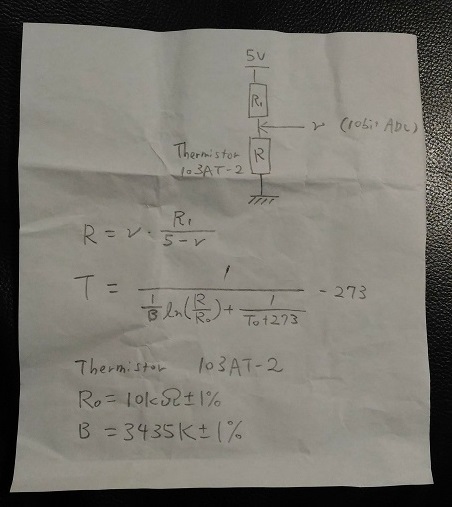 5V
R₁
v (10bit ADC)
R
Thermistor
103AT-2
R = v · R₁ / (5 - v)
T = 1 / ((1/B) ln(R/R₀) + 1/(T₀+273)) - 273
Thermistor 103AT-2
R₀ = 10kΩ ± 1%
B = 3435K ± 1%